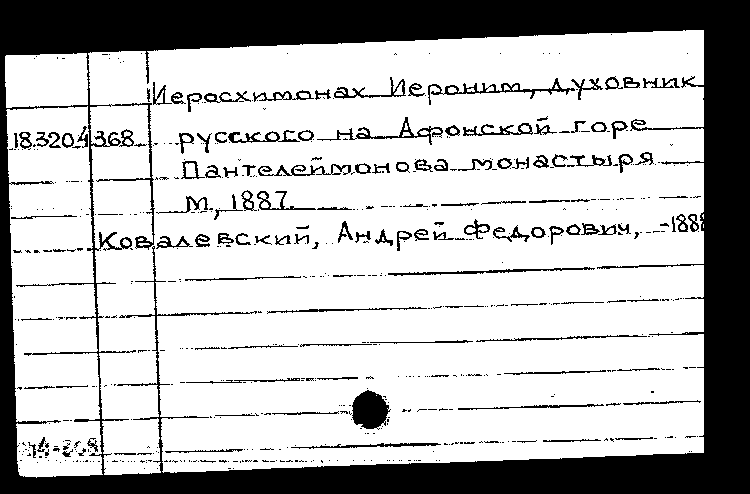 Иеросхимонах Иероним, духовник
18.320.4.368 русского на Афонской горе
Пантелеймонова монастыря
М., 1887.
Ковалевский, Андрей Федорович, -1888